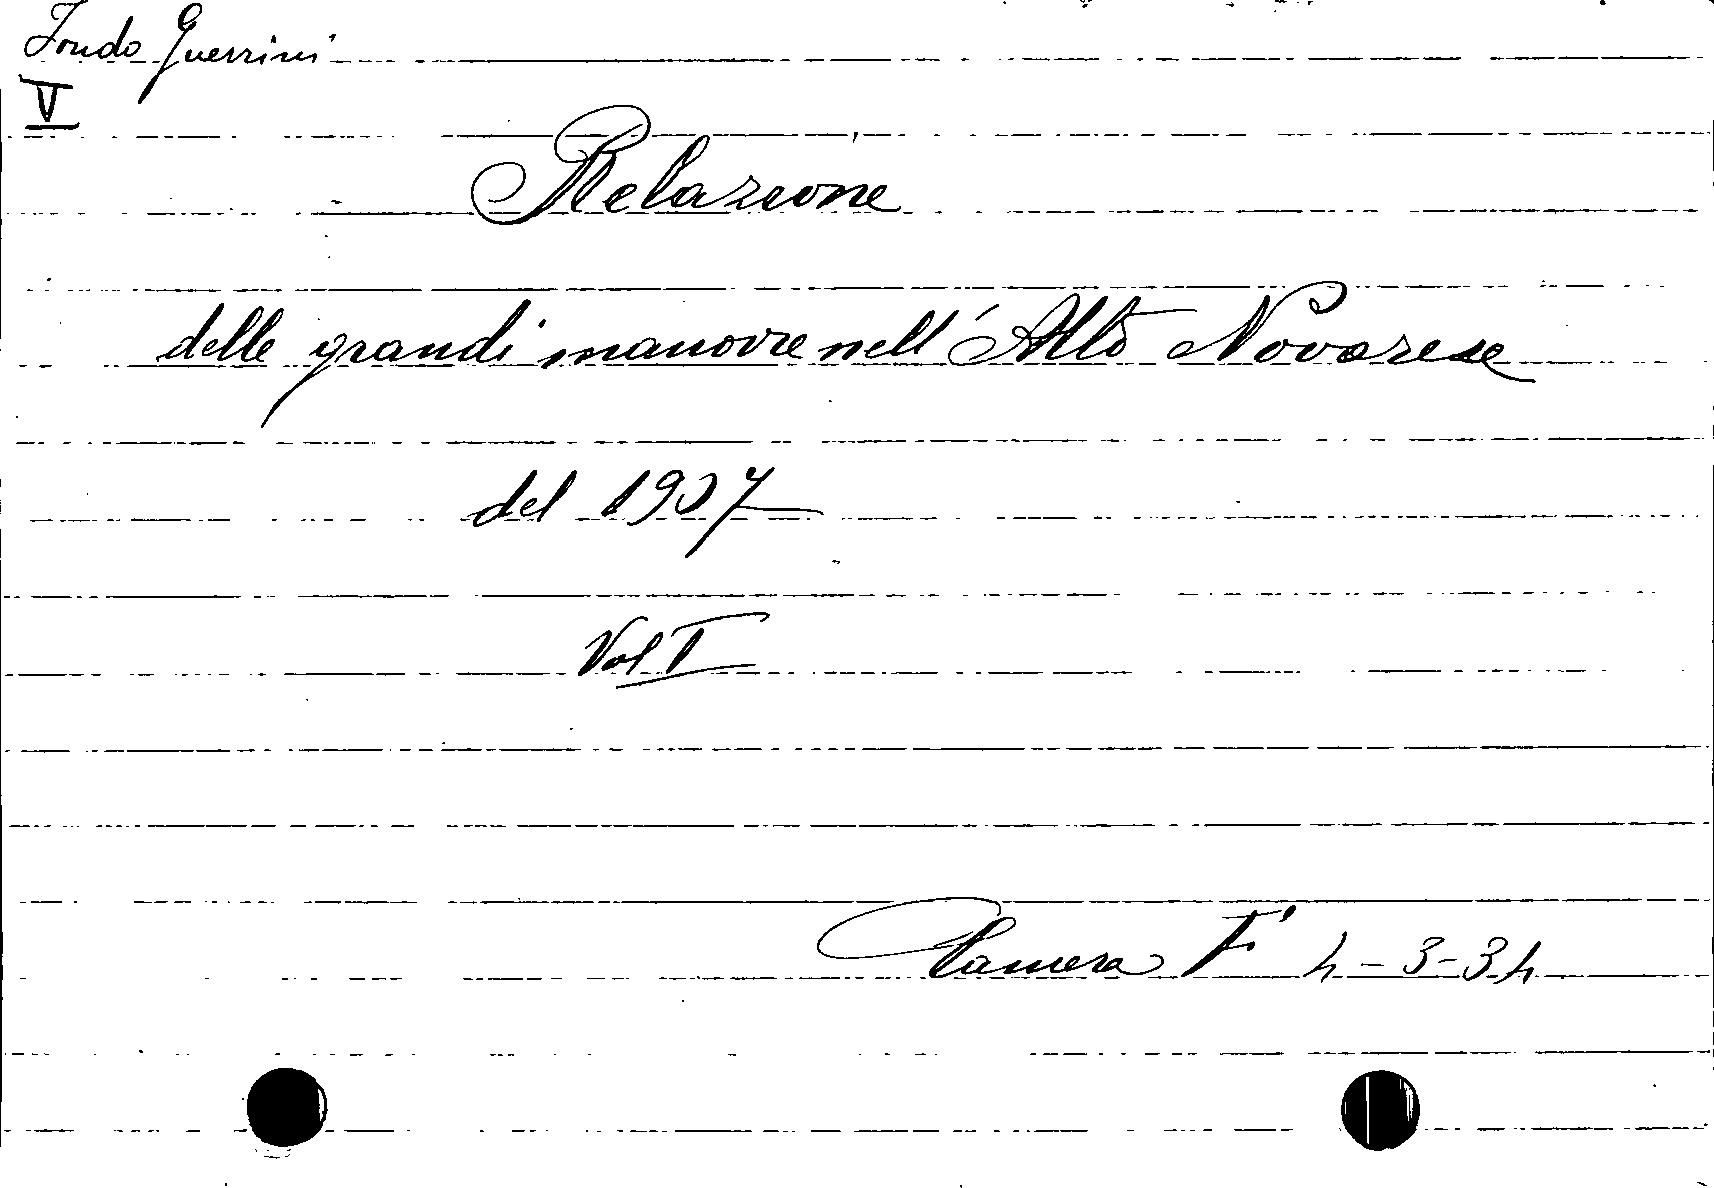 Fondo Guerrini
V
Relazione
delle grandi manovre nell'Alto Novarese
del 1907
Vol I
Camera F' 4-3-34